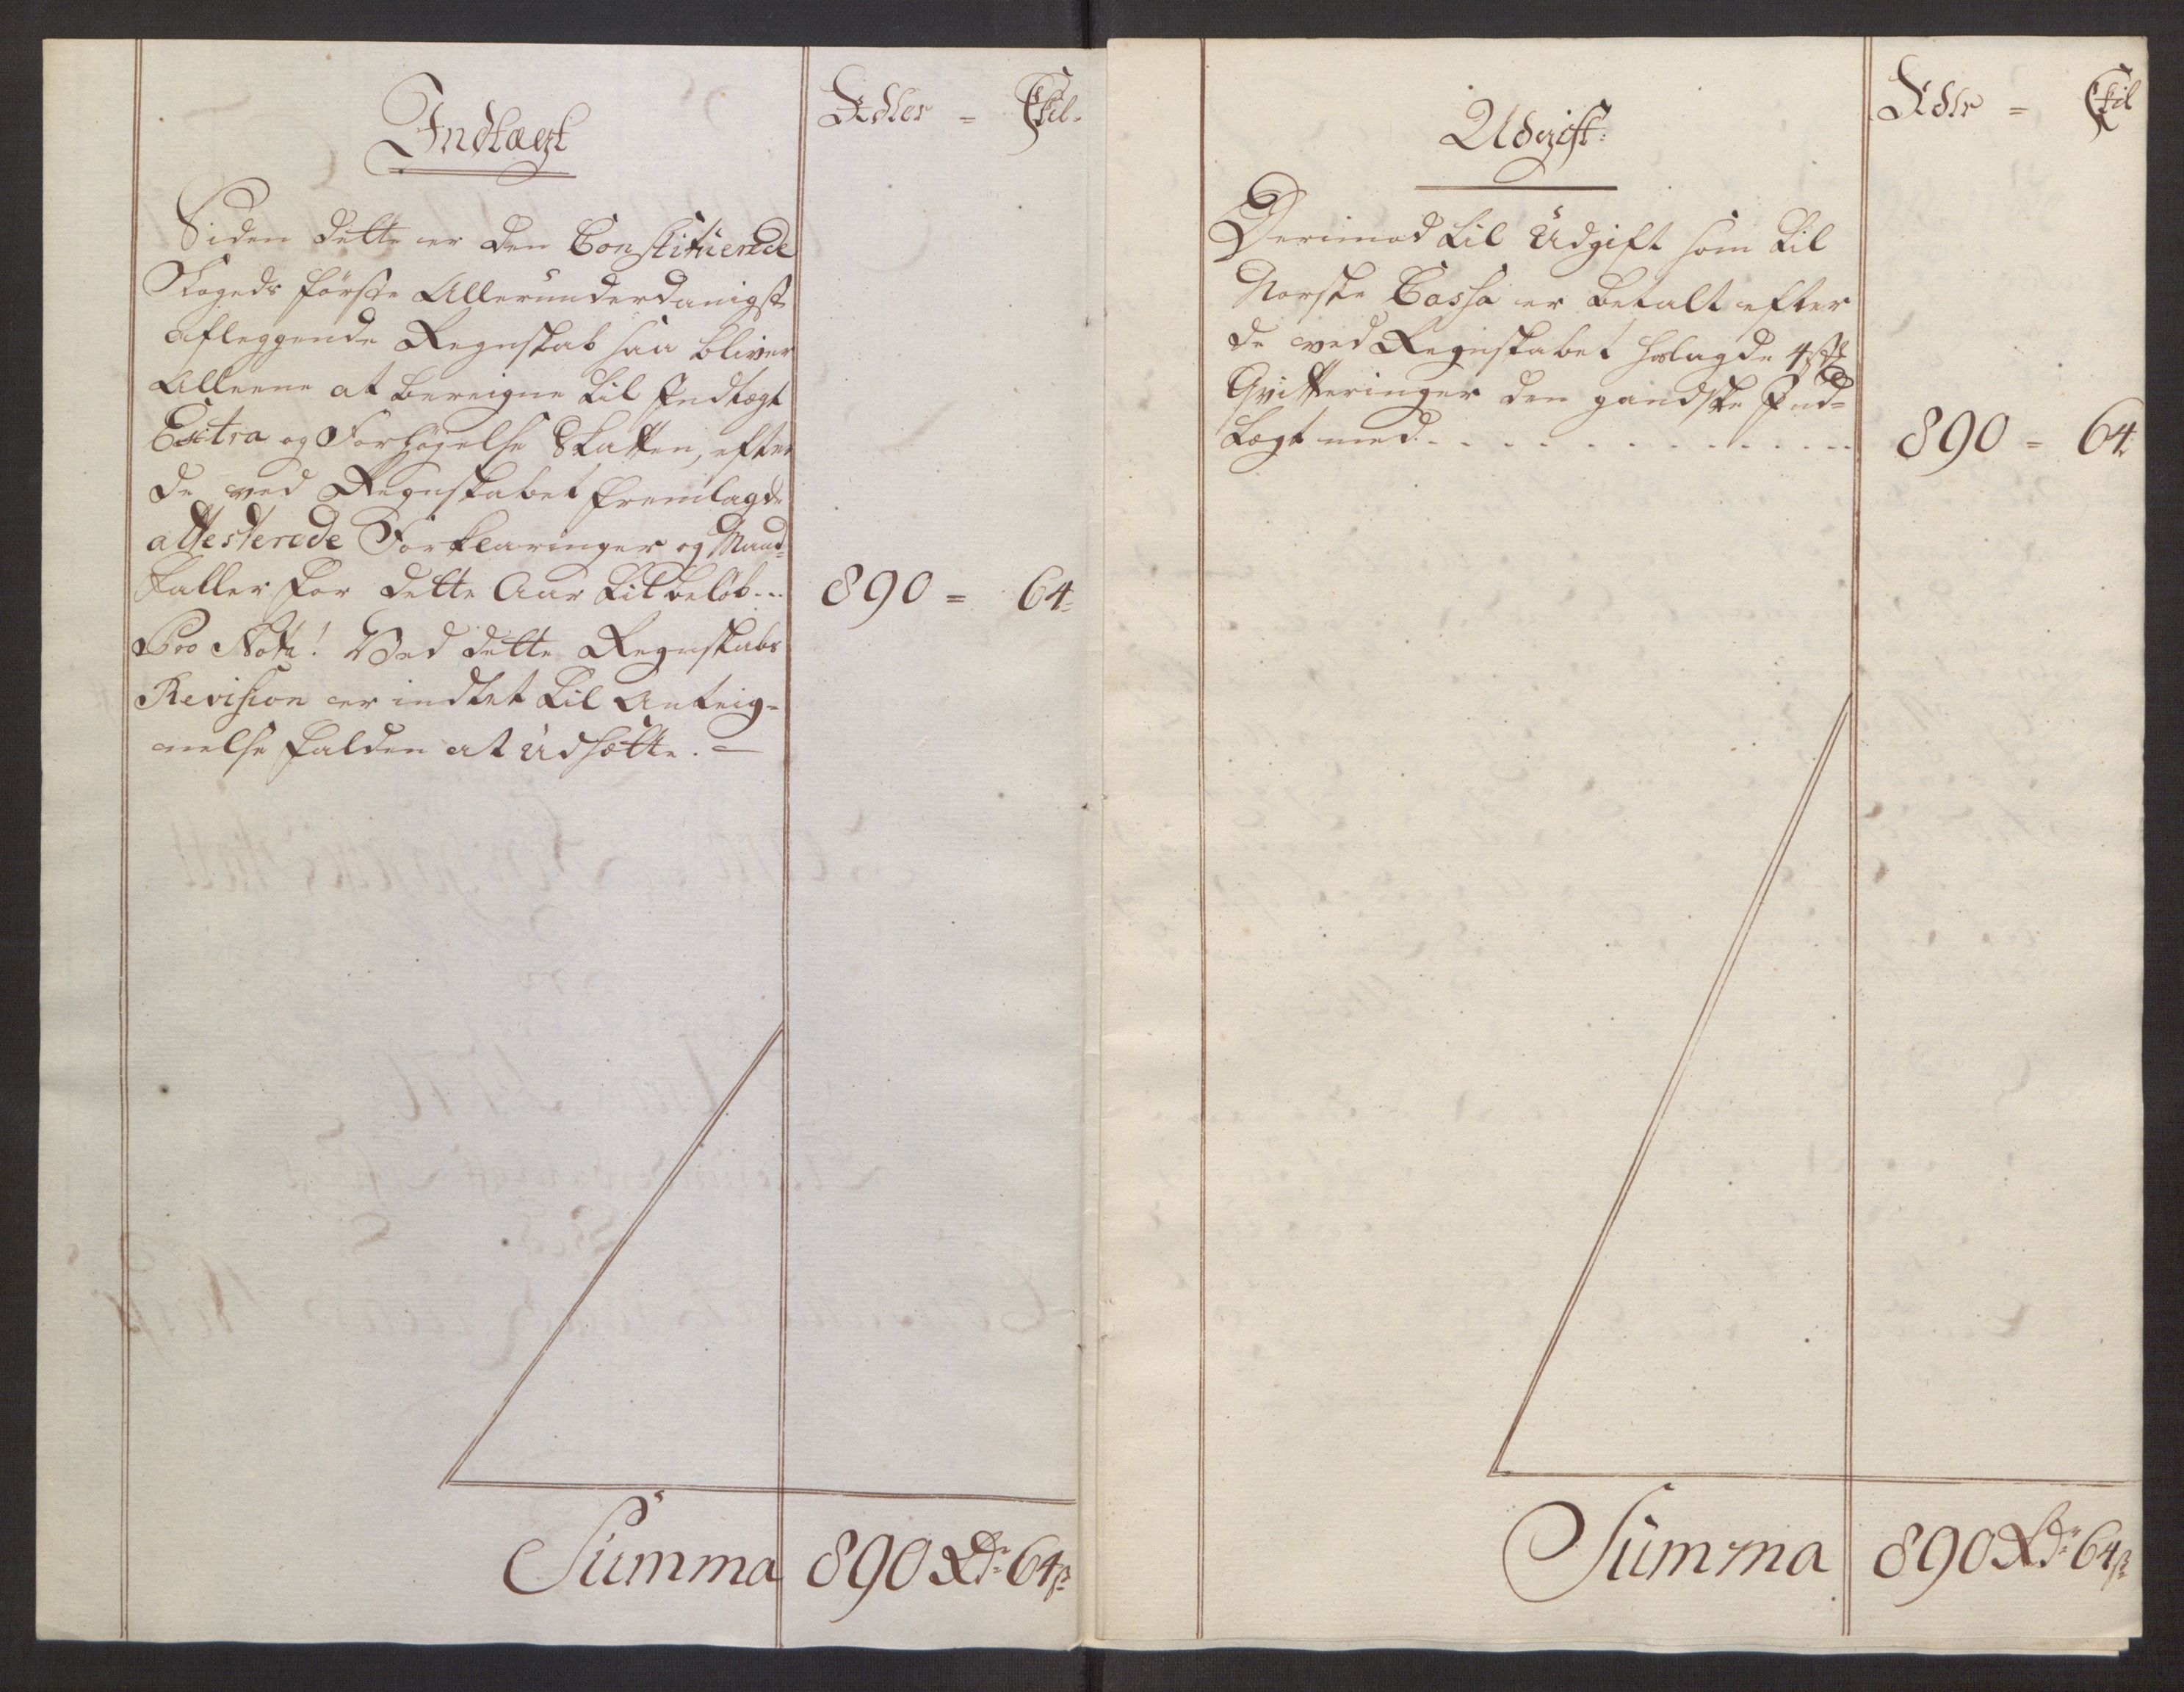 Indtægt
Rdler = Skil.
Siden dette er den Constituerede
Fogeds første Allerunderdanigst
afleggende Regnskab saa bliver
Alleene at bereigne til Indtægt
Extra og Forhøjelse Skatten, efter
de ved Regnskabet fremlagde
attesterede Forklaringer og Mand-
taller for dette Aar til beløb... 890 = 64=
Pro Nota! Ved dette Regnskabs
Revision er indtet til Anteig-
nelse falden at Udsætte. —
Summa 890 Rdr 64ß
Udgift:
Rdlr = Skil
Derimod til Udgift som til
Norske Cassa er betalt efter
de ved Regnskabet 4 st
Qvitteringer den gandske Ind=
tægt med . . . . . . . . . . . . 890 = 64.
Summa 890 Rdr 64ß